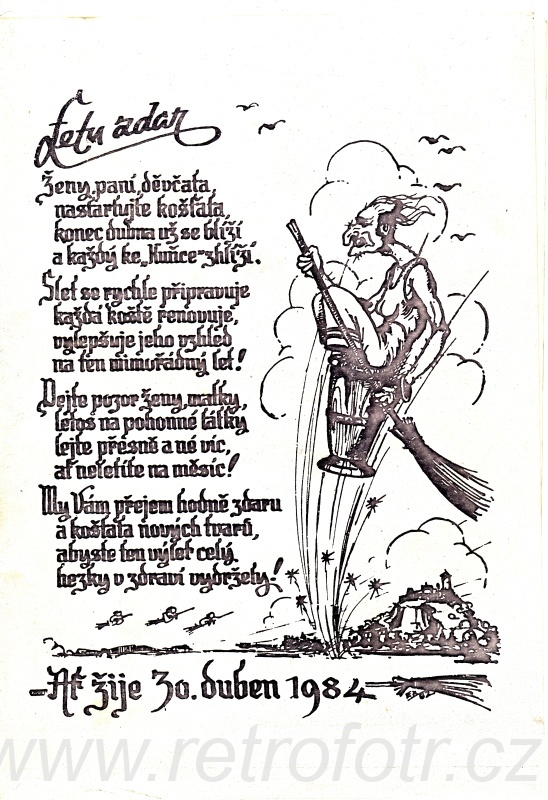 Letu zdar
Ženy, paní, děvčata,
nastartujte košťata,
konec dubna už se blíží
a každý ke „Kuňce“ zhlíží.
Slet se rychle připravuje
každá koště renovuje,
vylepšuje jeho vzhled
na ten mimořádný let!
Dejte pozor ženy, matky,
letos na pohonné látky
lejte přesně a né víc,
ať neletíte na měsíc!
My Vám přejem hodně zdaru
a košťata nových tvarů,
abyste ten výlet celý,
hezky v zdraví vydržely!
Ať žije 30. duben 1984
www.retrofotr.cz